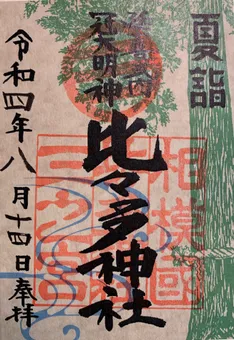 夏詣
延喜式内
冠大明神
比々多神社
相模國
三之宮
令和四年八月十四日奉拝